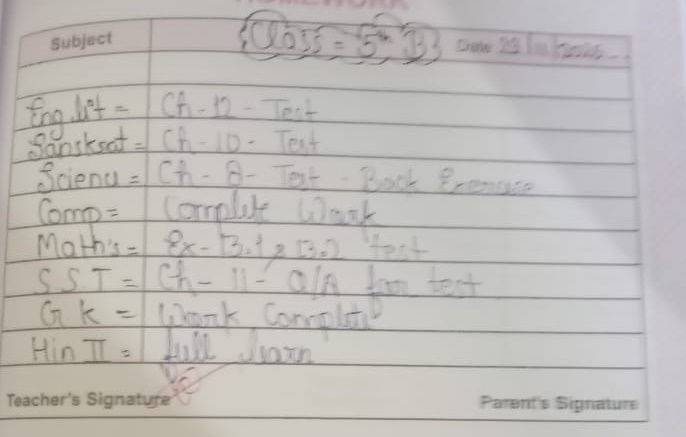 HOMEWORK
Subject {Class = 5th B} Date 29
Eng.lit = Ch - 12 - Test
Sansksat = Ch - 10 - Test
Science = Ch - 8 - Test - Book Exercise
Comp = Complete Work
Math's = Ex - 13.1, 13.2 test
S.S.T = Ch - 11 - Q/A for test
G K = Work Complete
Hin II = full learn
Teacher's Signature Parent's Signature